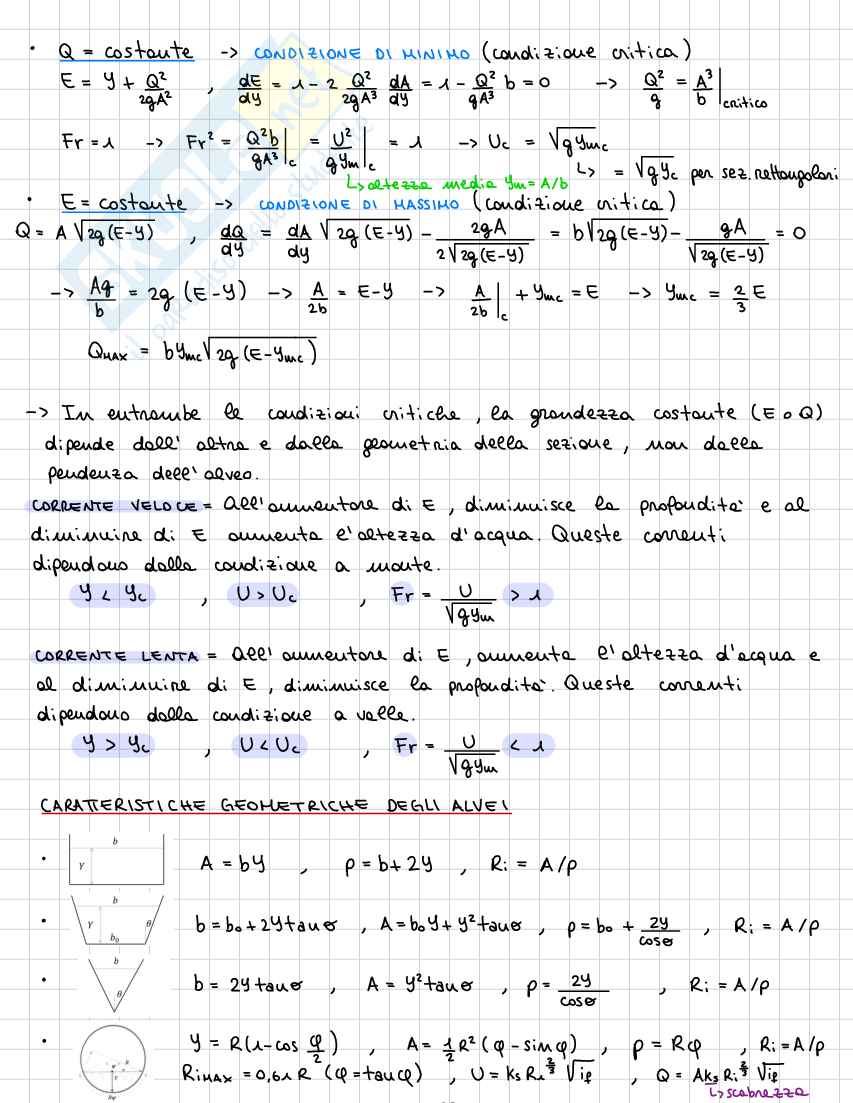 • Q = costante -> CONDIZIONE DI MINIMO (condizione critica)
E = Y + Q²/2gA² , dE/dy = 1 - 2 Q²/2gA³ dA/dy = 1 - Q²/gA³ b = 0 -> Q²/g = A³/b |critico
Fr = 1 -> Fr² = Q²b/gA³ |c = U²/gYm |c = 1 -> Uc = √gYmc
↳ altezza media Ym = A/b
↳ = √gYc per sez. rettangolari
• E = costante -> CONDIZIONE DI MASSIMO (condizione critica)
Q = A √2g(E-Y) , dQ/dy = dA/dy √2g(E-Y) - 2gA/2√2g(E-Y) = b√2g(E-Y) - gA/√2g(E-Y) = 0
-> Ag/b = 2g (E-Y) -> A/2b = E-Y -> A/2b |c + Ymc = E -> Ymc = 2/3 E
QMAX = bYmc√2g(E-Ymc)
-> In entrambe le condizioni critiche, la grandezza costante (E o Q)
dipende dall'altra e dalla geometria della sezione, non dalla
pendenza dell'alveo.
CORRENTE VELOCE = All'aumentare di E, diminuisce la profondità e al
diminuire di E aumenta l'altezza d'acqua. Queste correnti
dipendono dalla condizione a monte.
Y < Yc , U > Uc , Fr = U/√gYm > 1
CORRENTE LENTA = all'aumentare di E, aumenta l'altezza d'acqua e
al diminuire di E, diminuisce la profondità. Queste correnti
dipendono dalla condizione a valle.
Y > Yc , U < Uc , Fr = U/√gYm < 1
CARATTERISTICHE GEOMETRICHE DEGLI ALVEI
• b Y A = bY , P = b + 2Y , Ri = A/P
• b Y θ b₀ b = b₀ + 2Ytanθ , A = b₀Y + Y²tanθ , P = b₀ + 2Y/cosθ , Ri = A/P
• b θ b = 2Y tanθ , A = Y²tanθ , P = 2Y/cosθ , Ri = A/P
• Y = R(1-cos φ/2) , A = 1/2 R²(φ - sinφ) , P = Rφ , Ri = A/P
RiMAX = 0,61 R (φ = tanφ) , U = Ks Ri^2/3 √if , Q = AKs Ri^2/3 √if
↳ scabrezza